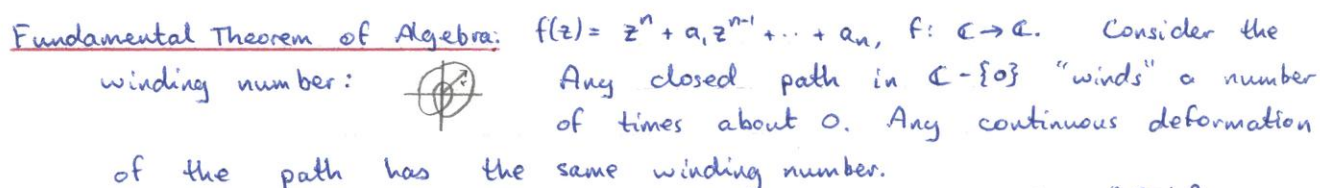 Fundamental Theorem of Algebra: f(z) = zⁿ + a₁zⁿ⁻¹ + ·· + aₙ, f: ℂ → ℂ. Consider the
winding number: Any closed path in ℂ - {0} "winds" a number
of times about 0. Any continuous deformation
of the path has the same winding number.